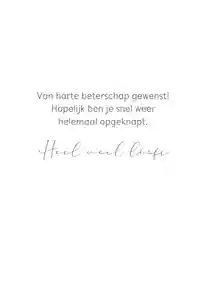 Van harte beterschap gewenst!
Hopelijk ben je snel weer
helemaal opgeknapt.
Heel veel liefs